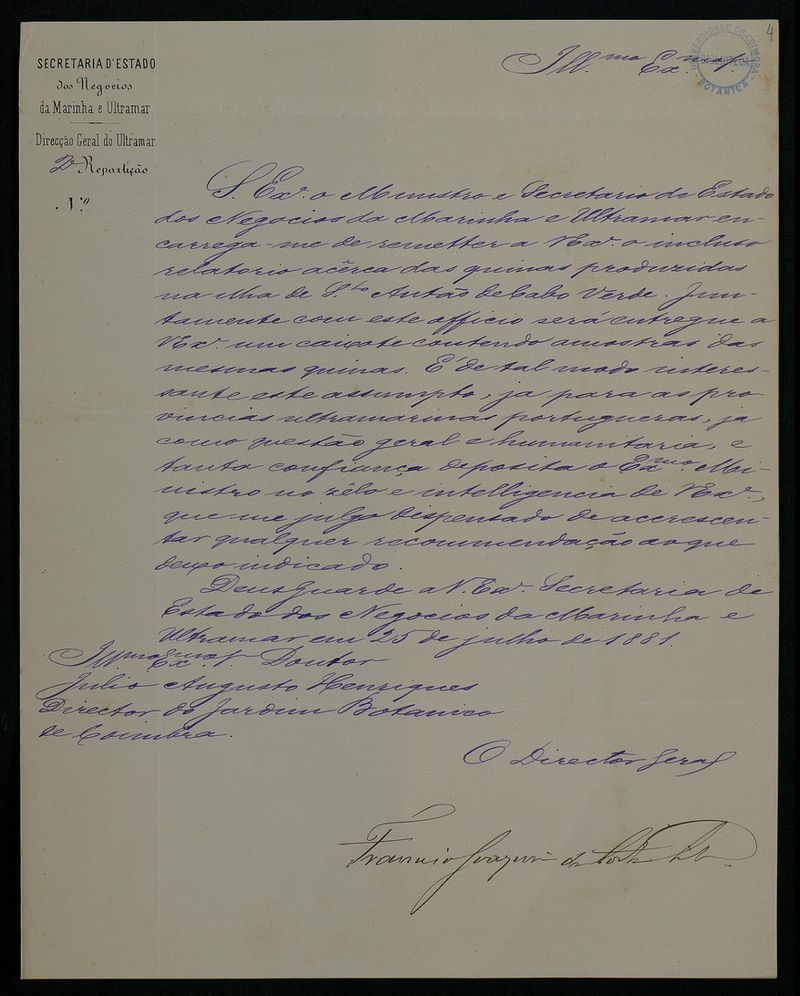 4
SECRETARIA D'ESTADO
dos Negocios
da Marinha e Ultramar
Direcção Geral do Ultramar
2ª Repartição
N.º
Ill.mo Ex.mo Sr.
UNIVERSIDADE DE COIMBRA
BIBLIOTECA
BOTANICA
S. Ex.ª o Ministro e Secretario de Estado
dos Negocios da Marinha e Ultramar en-
carrega-me de remetter a V. Ex.ª o incluso
relatorio acêrca das quinas produzidas
na ilha de S.to Antão de Cabo Verde. Jun-
tamente com este officio será entregue a
V. Ex.ª um caixote contendo amostras das
mesmas quinas. É de tal modo interes-
sante este assumpto, ja para as pro
vincias ultramarinas portuguezas, ja
como questão geral e humanitaria, e
tanta confiança deposita o Ex.mo Mi-
nistro no zêlo e intelligencia de V. Ex.ª,
que me julgo dispensado de accrescen-
tar qualquer recommendação ao que
deixo indicado.
Deus Guarde a V. Ex.ª Secretaria de
Estado dos Negocios da Marinha e
Ultramar em 25 de julho de 1881.
Ill.mo Ex.mo Sr. Doutor
Julio Augusto Henriques
Director do Jardim Botanico
de Coimbra.
O Director Geral
Francisco Joaquim da Costa e Silva